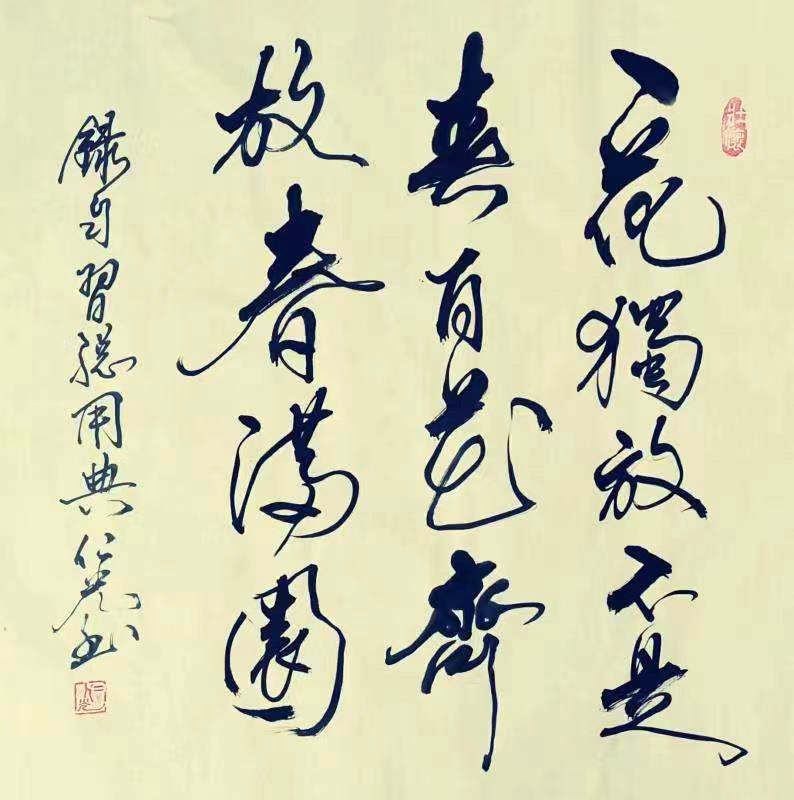 一花獨放不是
春百花齊
放春滿園
錄自習總用典仁光书